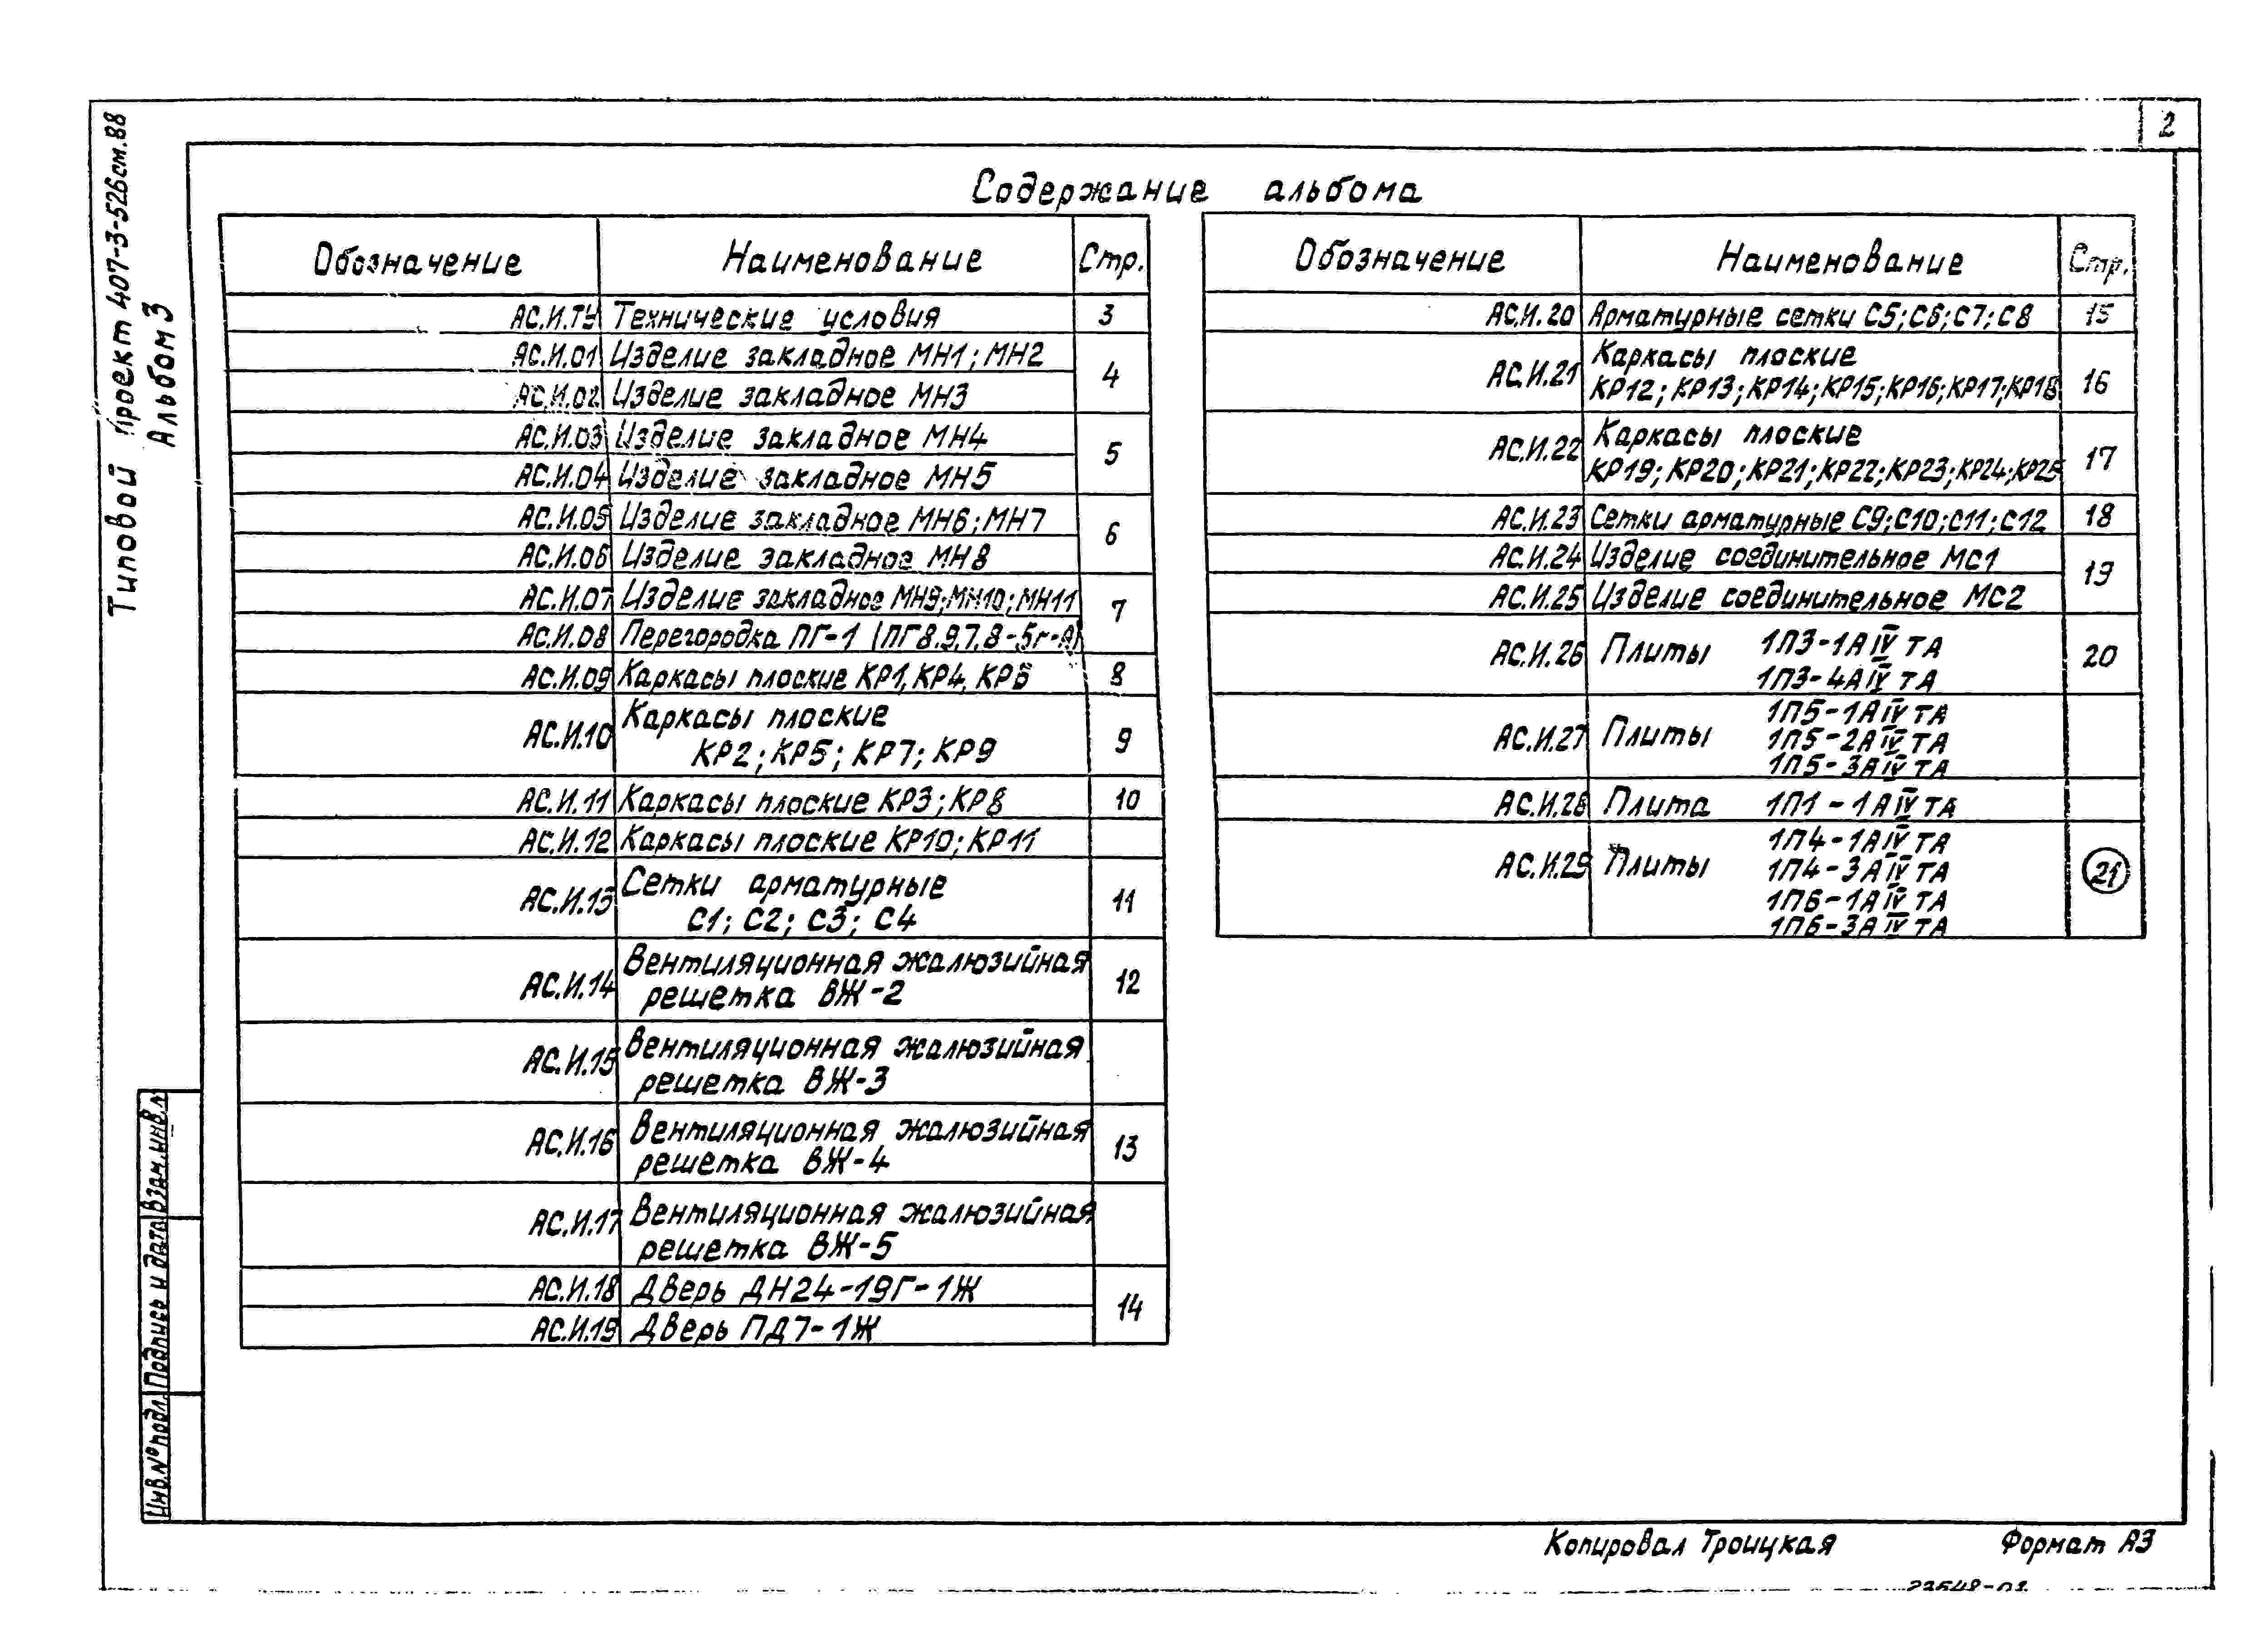 2
Типовой проект 407-3-526см.88
Альбом 3
Содержание альбома
Обозначение Наименование Стр.
АС.И.ТУ Технические условия 3
АС.И.01 Изделие закладное МН1; МН2
4
АС.И.02 Изделие закладное МН3
АС.И.03 Изделие закладное МН4
5
АС.И.04 Изделие закладное МН5
АС.И.05 Изделие закладное МН6; МН7
6
АС.И.06 Изделие закладное МН8
АС.И.07 Изделие закладное МН9; МН10; МН11
7
АС.И.08 Перегородка ПГ-1 (ПГ8.9.7.8-5г-А)
АС.И.09 Каркасы плоские КР1, КР4, КР6 8
АС.И.10 Каркасы плоские
КР2; КР5; КР7; КР9 9
АС.И.11 Каркасы плоские КР3; КР8 10
АС.И.12 Каркасы плоские КР10; КР11
АС.И.13 Сетки арматурные
С1; С2; С3; С4 11
АС.И.14 Вентиляционная жалюзийная
решетка ВЖ-2 12
АС.И.15 Вентиляционная жалюзийная
решетка ВЖ-3
АС.И.16 Вентиляционная жалюзийная
решетка ВЖ-4 13
АС.И.17 Вентиляционная жалюзийная
решетка ВЖ-5
АС.И.18 Дверь ДН24-19Г-1Ж
14
АС.И.19 Дверь ПД7-1Ж
Обозначение Наименование Стр.
АС.И.20 Арматурные сетки С5; С6; С7; С8 15
АС.И.21 Каркасы плоские
КР12; КР13; КР14; КР15; КР16; КР17; КР18 16
АС.И.22 Каркасы плоские
КР19; КР20; КР21; КР22; КР23; КР24; КР25 17
АС.И.23 Сетки арматурные С9; С10; С11; С12 18
АС.И.24 Изделие соединительное МС1
19
АС.И.25 Изделие соединительное МС2
АС.И.26 Плиты 1П3-1АIV ТА 20
1П3-4АIV ТА
1П5-1АIV ТА
АС.И.27 Плиты 1П5-2АIV ТА
1П5-3АIV ТА
АС.И.28 Плита 1П1-1АIV ТА
1П4-1АIV ТА
АС.И.29 Плиты 1П4-3АIV ТА 21
1П6-1АIV ТА
1П6-3АIV ТА
Взам.инв.
Подпись и дата
Инв.№ подл.
Копировал Троицкая Формат А3